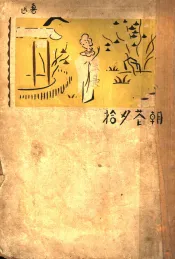 魯迅
朝花夕拾